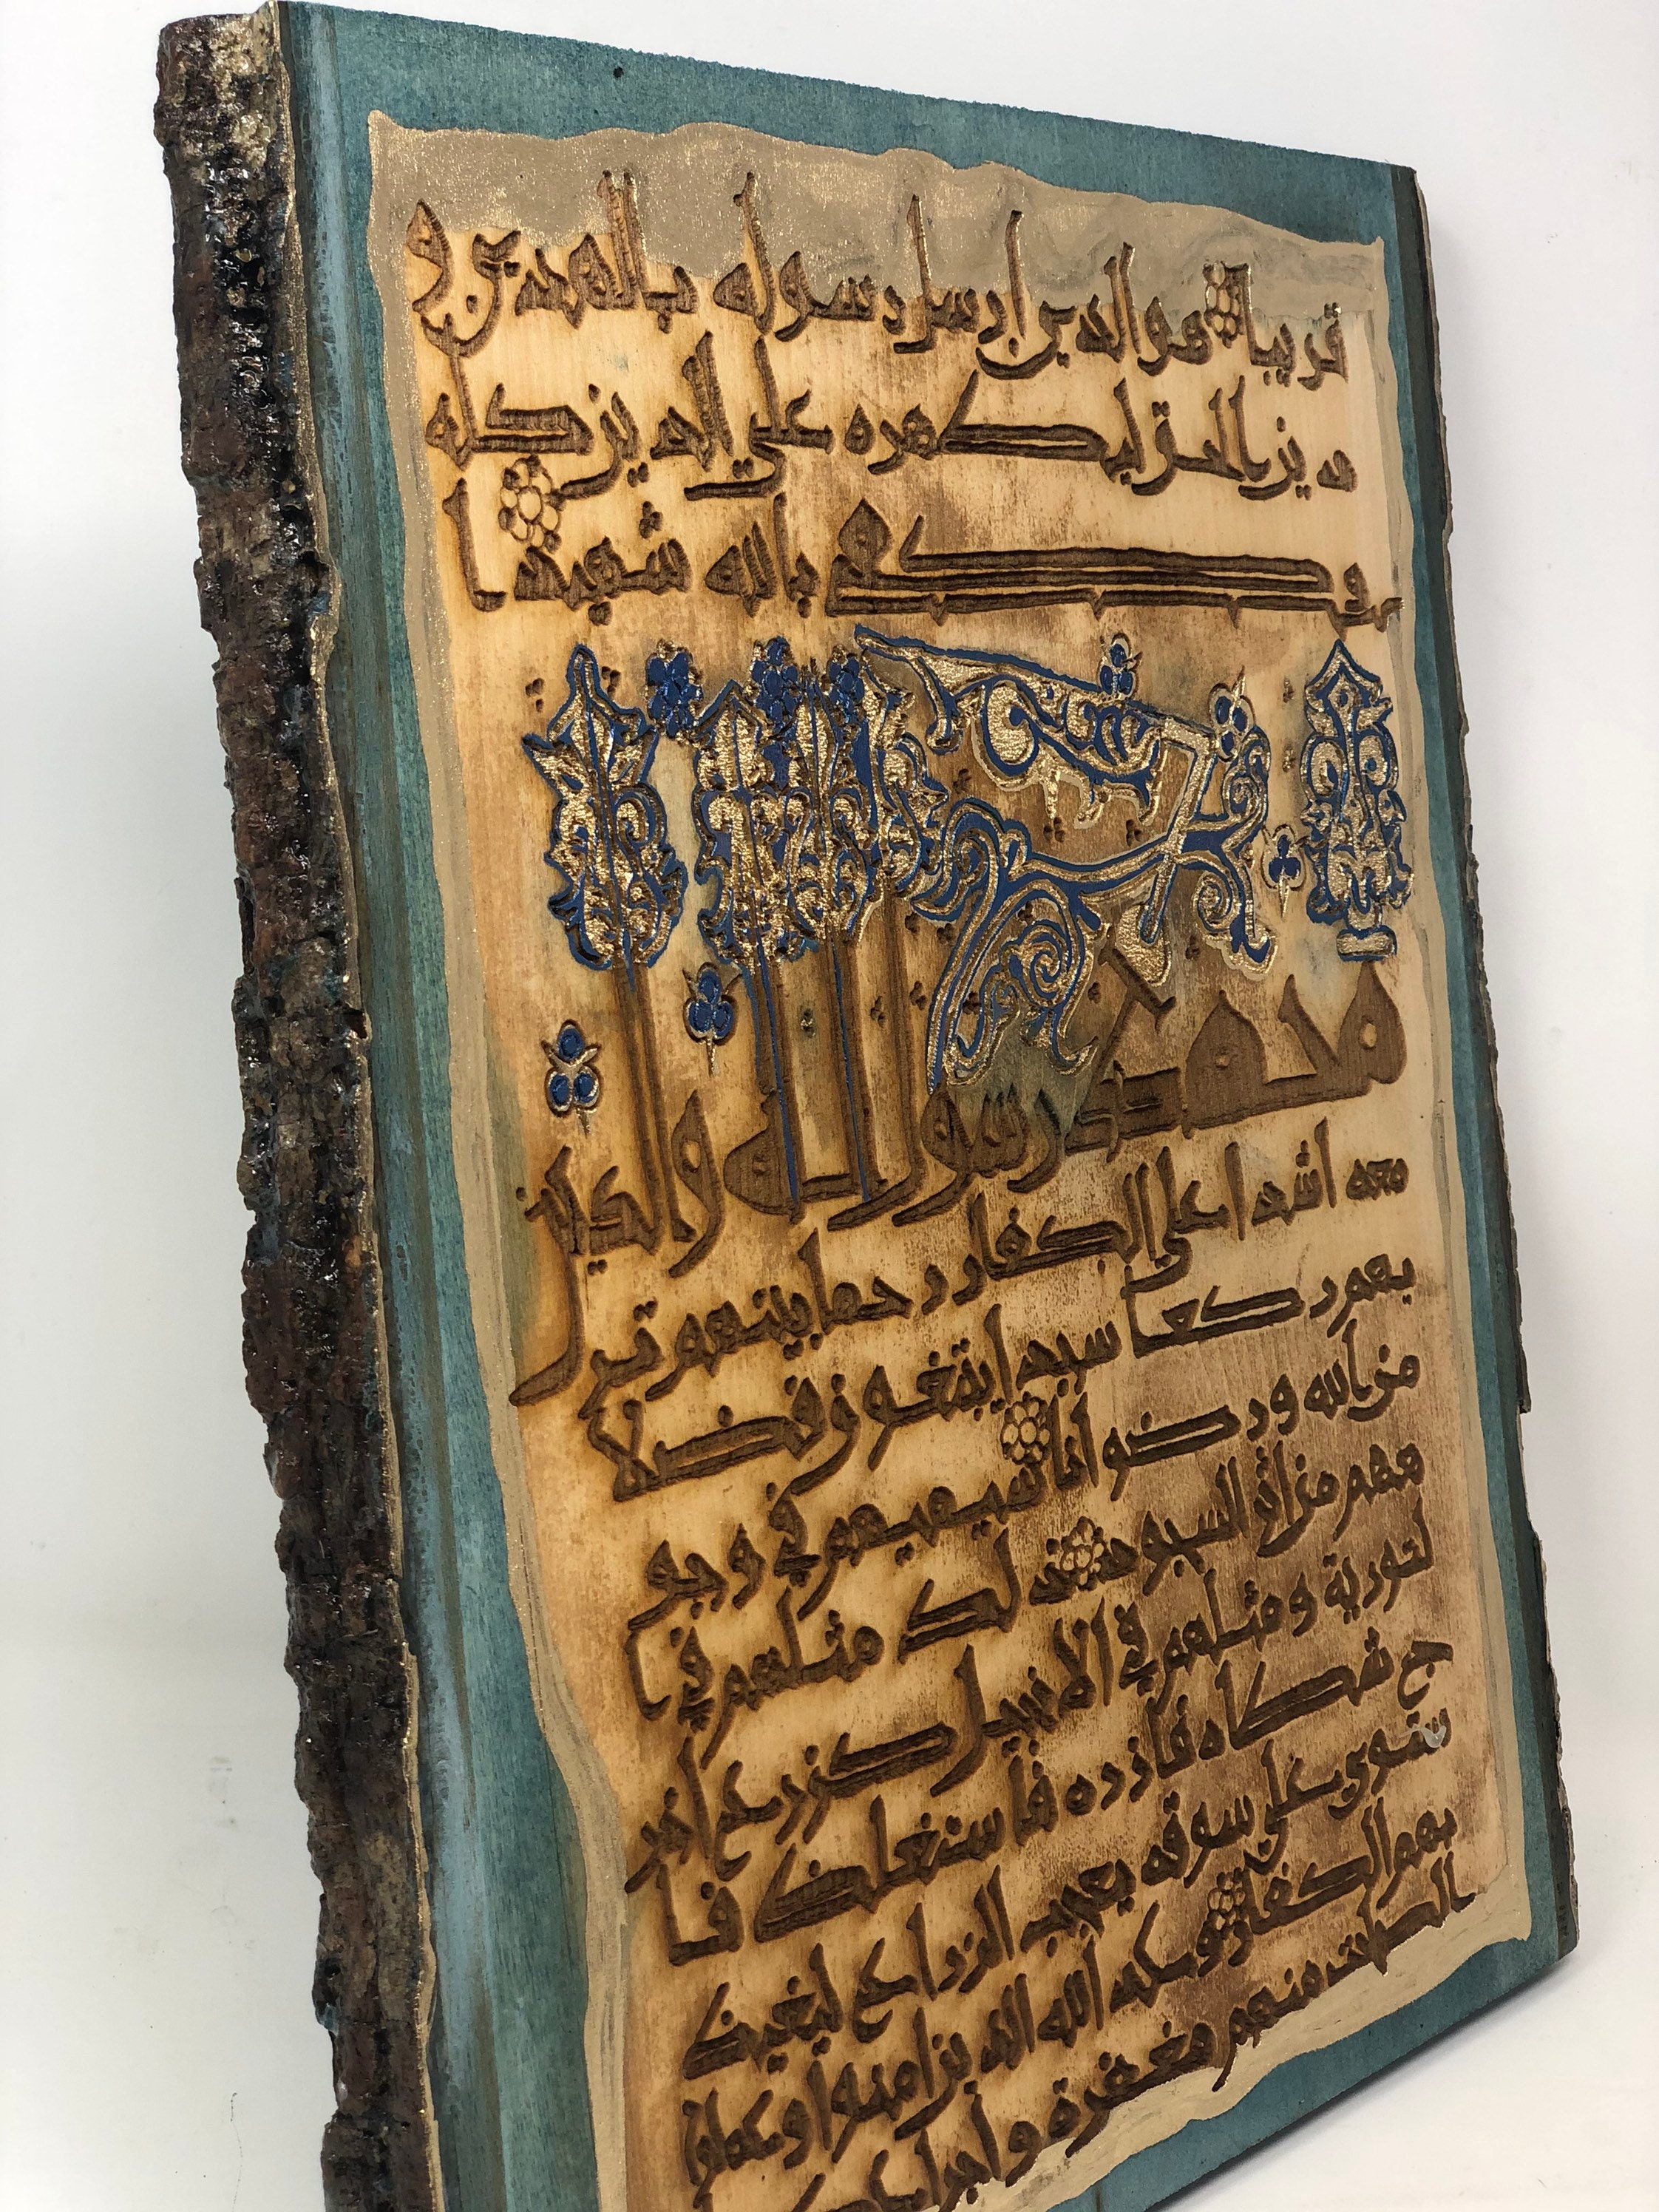 قريبا هو الذي ارسل رسوله بالهدى و
دين الحق ليظهره على الدين كله
وكفى بالله شهيدا
محمد رسول الله والذين
معه اشدا على الكفار رحما بينهم تر
يهم ركعا سجدا يبتغون فضلا
من الله ورضوانا سيميهم في وجو
ههم من اثر السجود ذلك مثلهم في ا
لتورية ومثلهم في الانجيل كزرع اخر
ج شطاه فازره فاستغلظ فا
ستوى على سوقه يعجب الزراع ليغيظ
بهم الكفار وعد الله الذين امنوا وعملوا
الصلحت منهم مغفرة واجرا